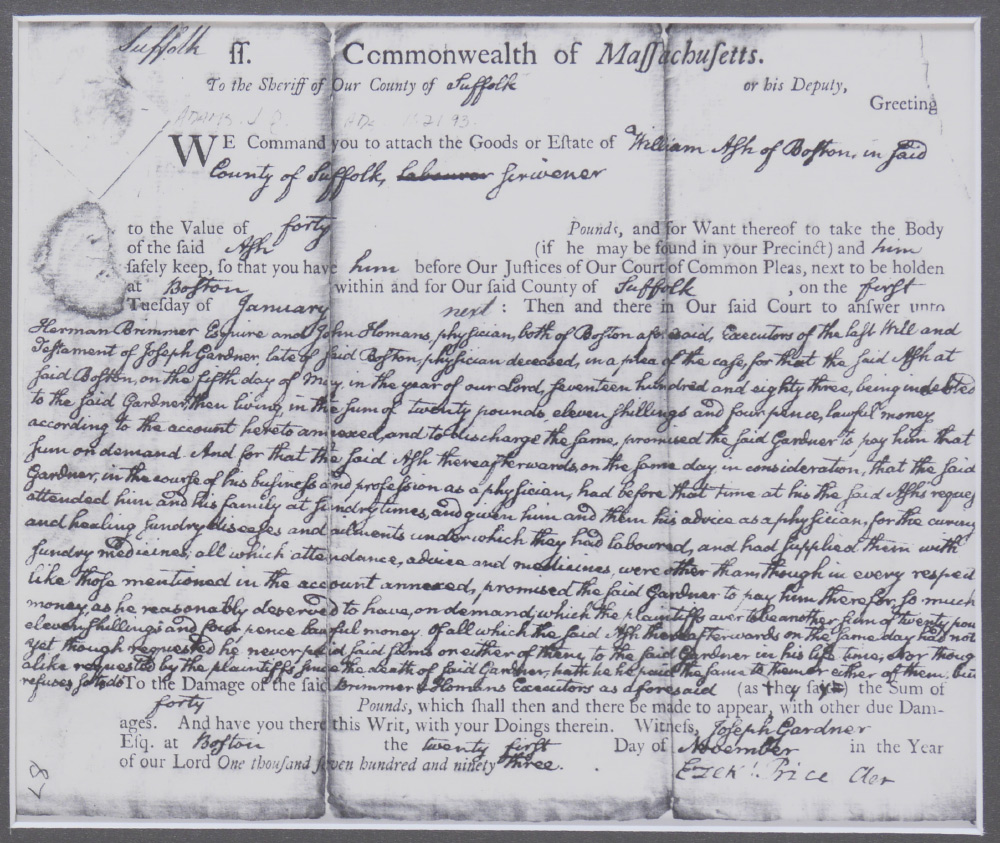 Suffolk ſſ. Commonwealth of Maſſachuſetts.
To the Sheriff of Our County of Suffolk or his Deputy,
Greeting
ADAMS J Q 11.21.93.
WE Command you to attach the Goods or Eſtate of William Aſh of Boſton, in ſaid
County of Suffolk, Labourer Scrivener
to the Value of forty Pounds, and for Want thereof to take the Body
of the ſaid Aſh (if he may be found in your Precinct) and him
ſafely keep, ſo that you have him before Our Juſtices of Our Court of Common Pleas, next to be holden
at Boſton within and for Our ſaid County of Suffolk, on the firſt
Tueſday of January next: Then and there in Our ſaid Court to anſwer unto
Herman Brimmer Esquire and John Homans, physician, both of Boſton aforesaid, Executors of the laſt Will and
Teſtament of Joſeph Gardner late of ſaid Boſton, phyſician deceased, in a plea of the caſe, for that the ſaid Aſh at
ſaid Boſton, on the fifth day of May, in the year of our Lord, ſeventeen hundred and eighty three, being indebted
to the ſaid Gardner, then living, in the ſum of twenty pounds, eleven ſhillings and four pence, lawful money
according to the account hereto annexed, and to discharge the ſame, promised the ſaid Gardner to pay him that
ſum on demand. And for that the ſaid Aſh thereafterwards, on the ſame day in consideration, that the ſaid
Gardner, in the courſe of his buſineſs and profeſſion as a phyſician, had before that time at his the ſaid Aſhs reque
attended him and his family at ſundry times, and given him and them his advice as a phyſician, for the curing
and healing ſundry diseases and ailments under which they had laboured, and had ſupplied them with
ſundry medicines; all which attendance, advice and medicines, were other than, though in every respect
like thoſe mentioned in the account annexed, promised the ſaid Gardner to pay him therefor, ſo much
money, as he reasonably deserved to have, on demand; which the plaintiffs aver to be another ſum of twenty pou
eleven ſhillings and four pence lawful money. Of all which the ſaid Aſh thereafterwards on the ſame day had not
yet though requested he never paid ſaid ſums or either of them, to the ſaid Gardner in his life time, nor thoug
alike requested by the plaintiffs ſince the death of ſaid Gardner, hath he paid the ſame to them or either of them, but
refuses ſo to do To the Damage of the ſaid Brimmer & Homans Executors as aforesaid (as they ſay) the Sum of
forty Pounds, which ſhall then and there be made to appear, with other due Dam-
ages. And have you there this Writ, with your Doings therein. Witneſs, Joſeph Gardner
Eſq. at Boſton the twenty firſt Day of November in the Year
of our Lord One thouſand ſeven hundred and ninety three.
Ezek. Price Cler
87